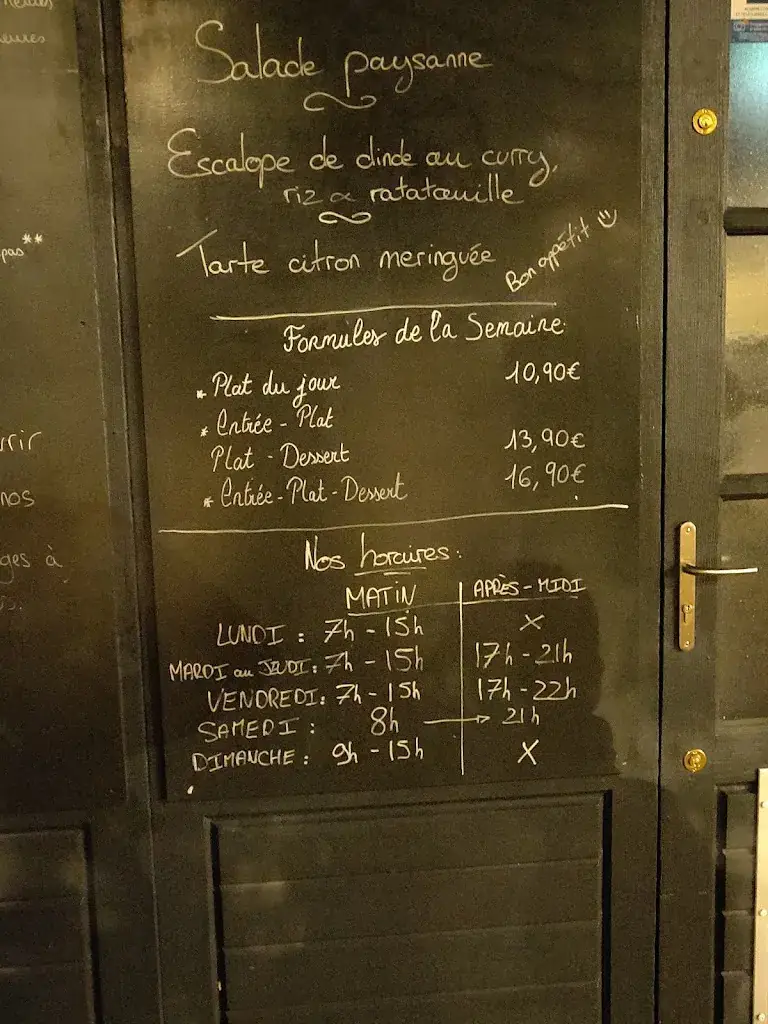 Salade paysanne
Escalope de dinde au curry,
riz & ratatouille
Tarte citron meringuée
Bon appétit
Formules de la Semaine
* Plat du jour 10,90€
* Entrée - Plat
Plat - Dessert 13,90€
* Entrée - Plat - Dessert 16,90€
Nos horaires :
MATIN APRÈS - MIDI
LUNDI : 7h - 15h X
MARDI au JEUDI : 7h - 15h 17h - 21h
VENDREDI : 7h - 15h 17h - 22h
SAMEDI : 8h → 21h
DIMANCHE : 9h - 15h X
pas**
nos
à